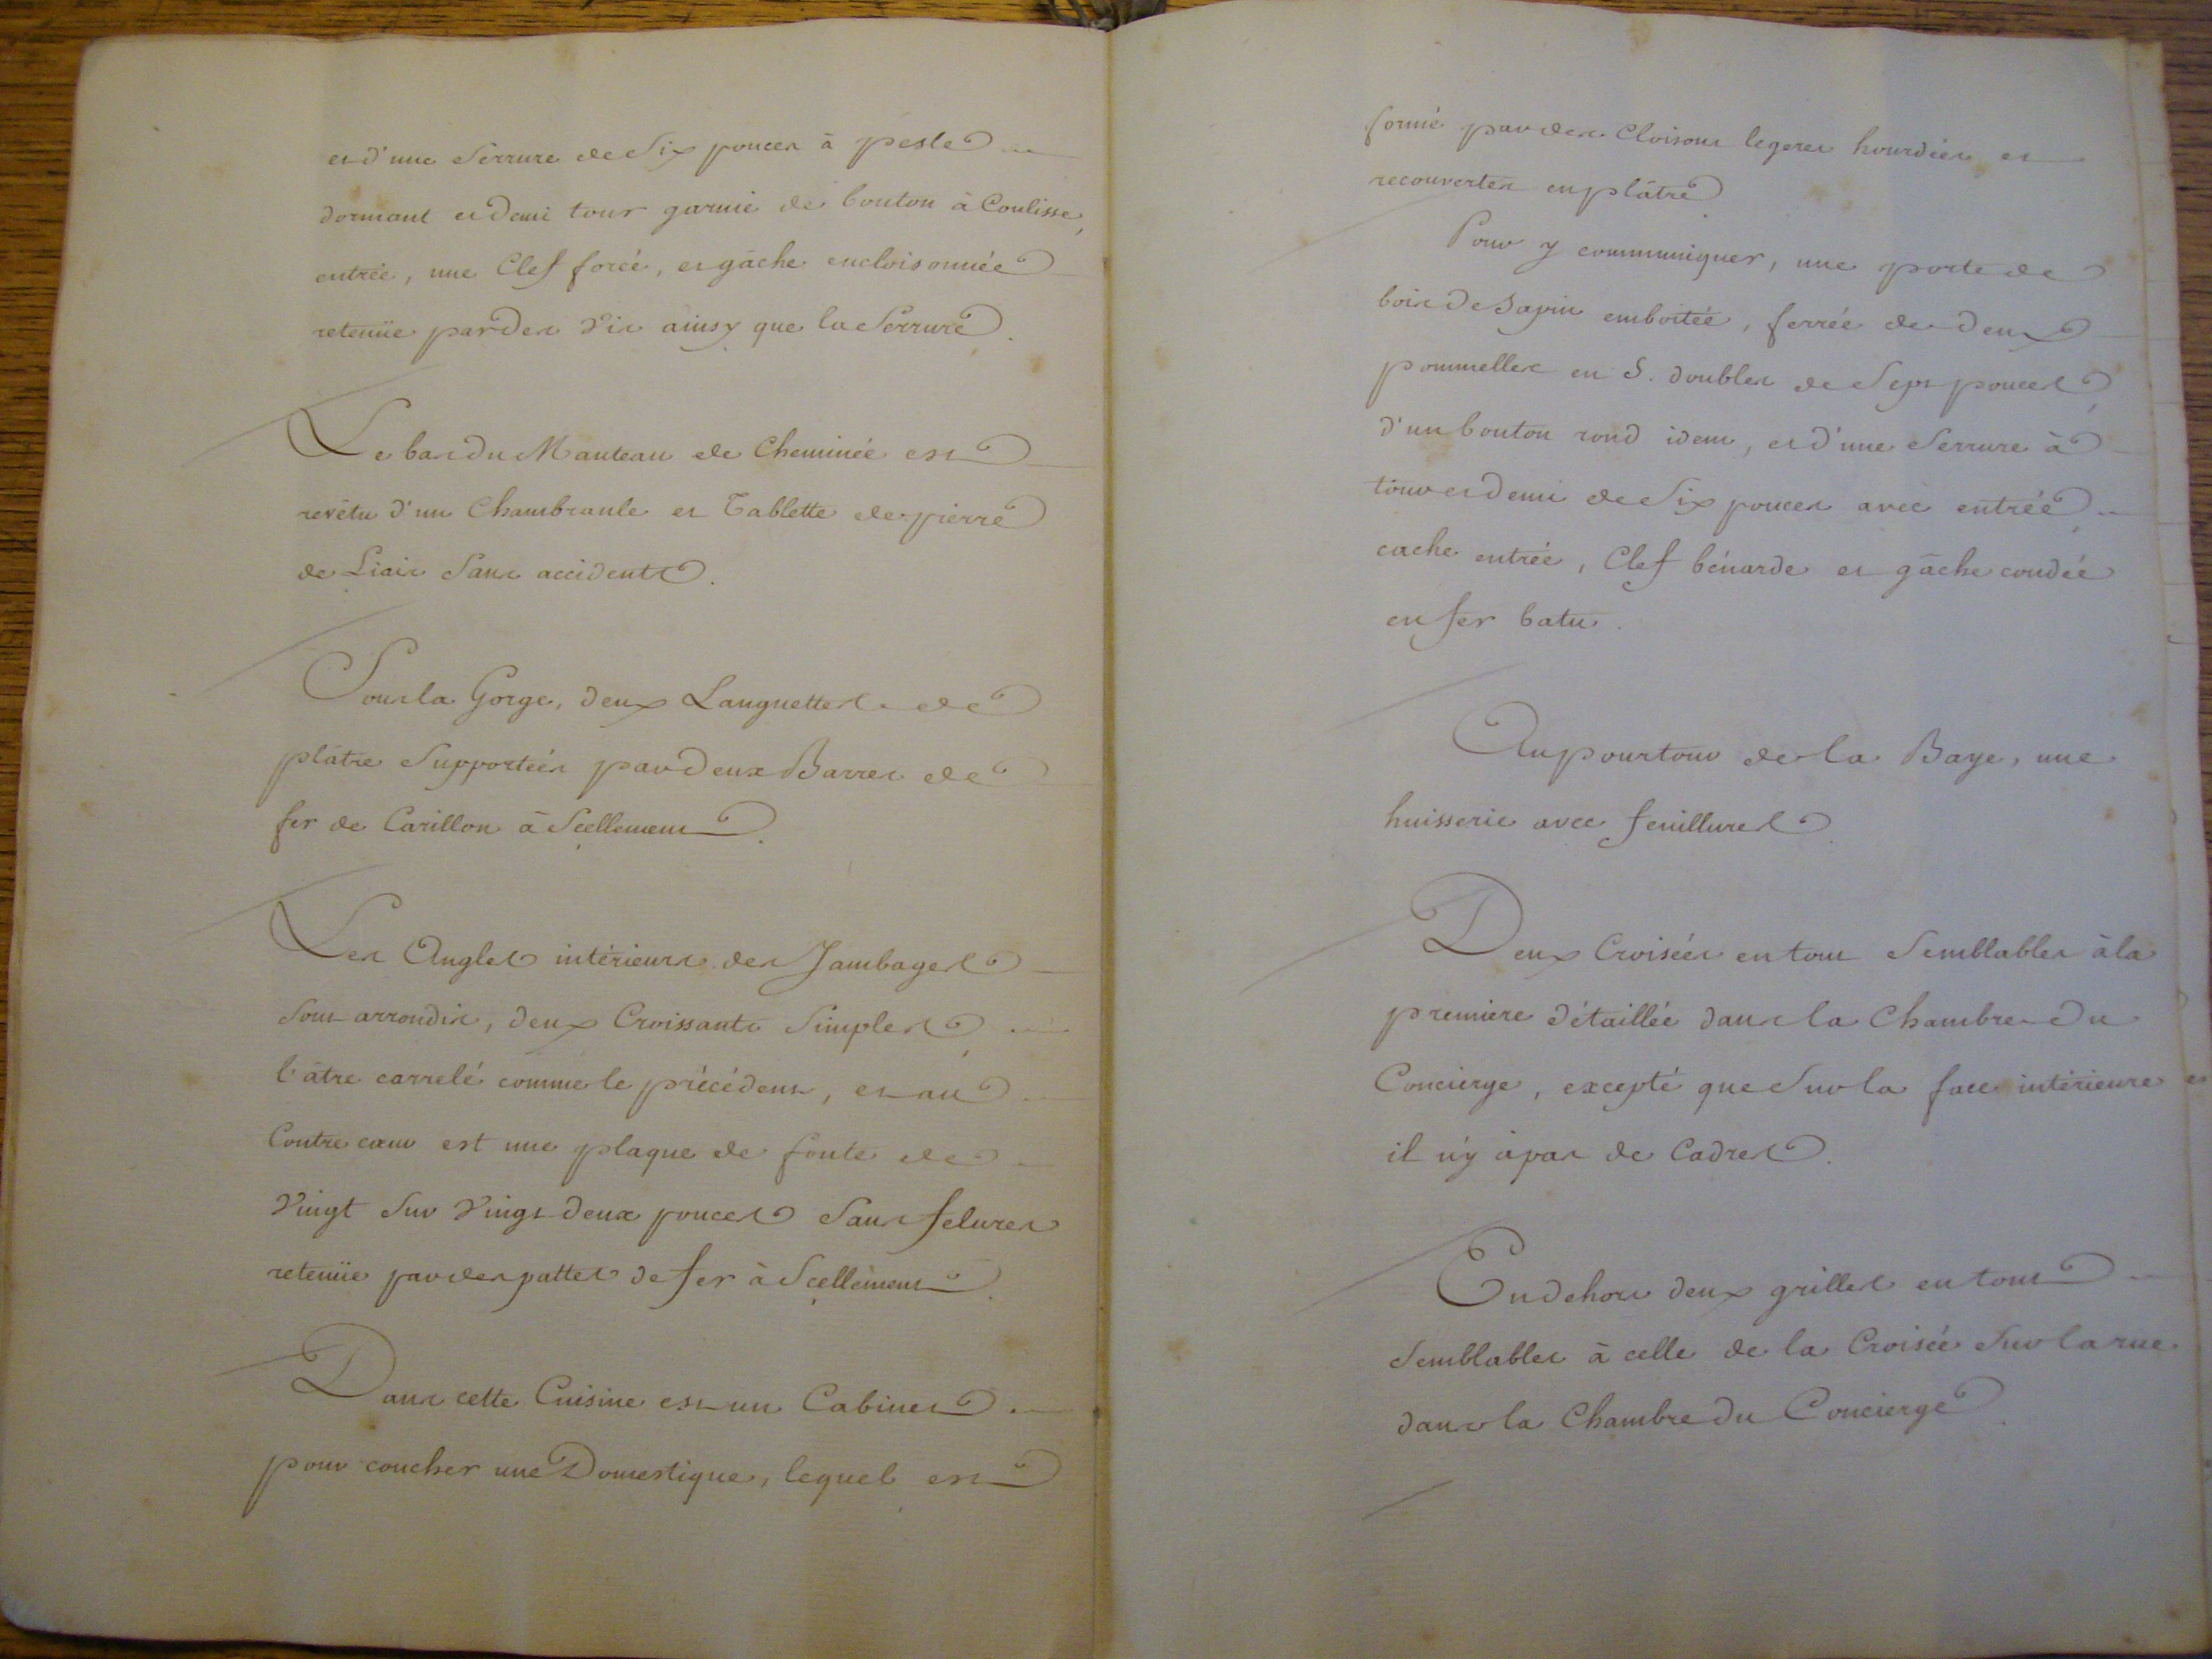 et d'une Serrure de Six pouces à pesle
dormant et demi tour garnie de bouton à Coulisse,
entrée, une Clef forée, et gâche encloisonnée
retenüe par des Vis ainsy que la Serrure.
Le bas du Manteau de Cheminée est
revêtu d'un Chambranle et Tablette de pierre
de Liais Sans accidents.
Sous la Gorge, deux Languettes de
plâtre Supportées par deux Barres de
fer de Carillon à Scellement.
Les Angles intérieurs des Jambages
Sont arrondis, deux Croissants Simples,
l'âtre carrelé comme le précédent, et au
Contre cœur est une plaque de fonte de
Vingt Sur Vingt deux pouces Sans felures
retenüe par des pattes de fer à Scellement.
Dans cette Cuisine est un Cabinet
pour coucher une Domestique, lequel est
formé par des Cloisons legeres hourdées et
recouvertes en plâtre.
Pour y communiquer, une porte de
bois de Sapin emboitée, ferrée de deux
pommelles en S. doubles de Sept pouces,
d'un bouton rond idem, et d'une Serrure à
tour et demi de Six pouces avec entrée,
cache entrée, Clef bénarde et gâche coudée
en fer batu.
Au pourtour de la Baye, une
huisserie avec feuillures.
Deux Croisées en tout Semblables à la
premiere détaillée dans la Chambre du
Concierge, excepté que Sur la face intérieure
il n'y à pas de Cadres.
En dehors deux grilles en tout
Semblables à celle de la Croisée Sur la rue
dans la Chambre du Concierge.